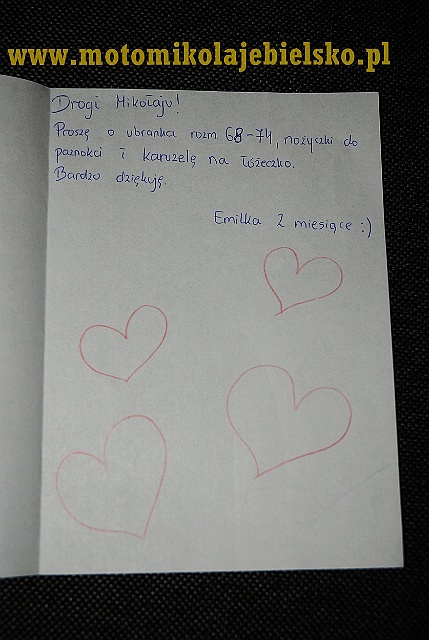 www.motomikolajebielsko.pl
Drogi Mikołaju!
Proszę o ubranka rozm. 68-74, nożyczki do
paznokci i karuzelę na łóżeczko.
Bardzo dziękuję.
Emilka 2 miesiące :)